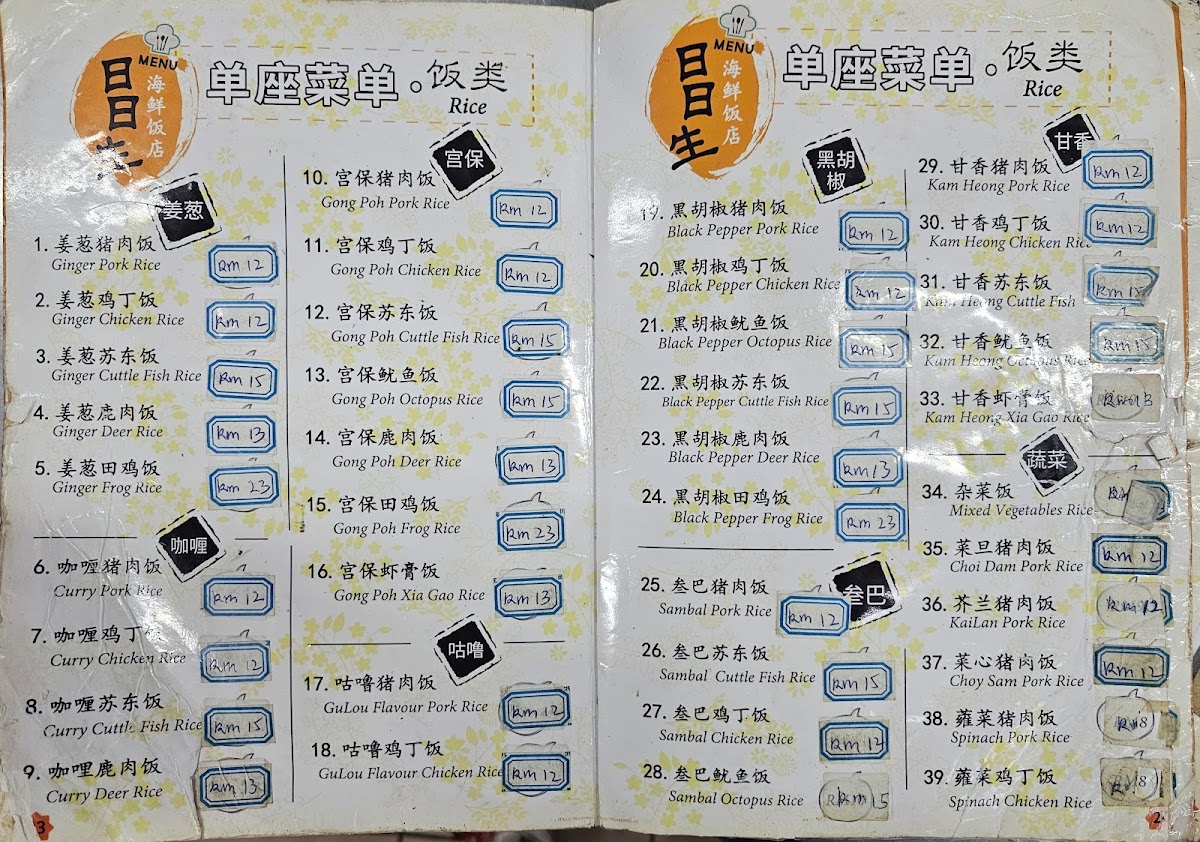 日日生
海鲜饭店
MENU
单座菜单。饭类
Rice
姜葱
1. 姜葱猪肉饭
Ginger Pork Rice
Rm 12
2. 姜葱鸡丁饭
Ginger Chicken Rice
Rm 12
3. 姜葱苏东饭
Ginger Cuttle Fish Rice
Rm 15
4. 姜葱鹿肉饭
Ginger Deer Rice
Rm 13
5. 姜葱田鸡饭
Ginger Frog Rice
Rm 23
咖喱
6. 咖喱猪肉饭
Curry Pork Rice
Rm 12
7. 咖喱鸡丁饭
Curry Chicken Rice
Rm 12
8. 咖喱苏东饭
Curry Cuttle Fish Rice
Rm 15
9. 咖哩鹿肉饭
Curry Deer Rice
Rm 13
3
宫保
10. 宫保猪肉饭
Gong Poh Pork Rice
Rm 12
11. 宫保鸡丁饭
Gong Poh Chicken Rice
Rm 12
12. 宫保苏东饭
Gong Poh Cuttle Fish Rice
Rm 15
13. 宫保鱿鱼饭
Gong Poh Octopus Rice
Rm 15
14. 宫保鹿肉饭
Gong Poh Deer Rice
Rm 13
15. 宫保田鸡饭
Gong Poh Frog Rice
Rm 23
16. 宫保虾膏饭
Gong Poh Xia Gao Rice
Rm 13
咕噜
17. 咕噜猪肉饭
GuLou Flavour Pork Rice
Rm 12
18. 咕噜鸡丁饭
GuLou Flavour Chicken Rice
Rm 12
日日生
海鲜饭店
MENU
单座菜单。饭类
Rice
黑胡椒
19. 黑胡椒猪肉饭
Black Pepper Pork Rice
Rm 12
20. 黑胡椒鸡丁饭
Black Pepper Chicken Rice
Rm 12
21. 黑胡椒鱿鱼饭
Black Pepper Octopus Rice
Rm 15
22. 黑胡椒苏东饭
Black Pepper Cuttle Fish Rice
Rm 15
23. 黑胡椒鹿肉饭
Black Pepper Deer Rice
Rm 13
24. 黑胡椒田鸡饭
Black Pepper Frog Rice
Rm 23
叁巴
25. 叁巴猪肉饭
Sambal Pork Rice
Rm 12
26. 叁巴苏东饭
Sambal Cuttle Fish Rice
Rm 15
27. 叁巴鸡丁饭
Sambal Chicken Rice
Rm 12
28. 叁巴鱿鱼饭
Sambal Octopus Rice
Rm 15
甘香
29. 甘香猪肉饭
Kam Heong Pork Rice
Rm 12
30. 甘香鸡丁饭
Kam Heong Chicken Rice
Rm 12
31. 甘香苏东饭
Kam Heong Cuttle Fish
Rm 15
32. 甘香鱿鱼饭
Kam Heong Octopus Rice
Rm 15
33. 甘香虾膏饭
Kam Heong Xia Gao Rice
蔬菜
34. 杂菜饭
Mixed Vegetables Rice
35. 菜旦猪肉饭
Choi Dam Pork Rice
Rm 12
36. 芥兰猪肉饭
KaiLan Pork Rice
Rm 12
37. 菜心猪肉饭
Choy Sam Pork Rice
Rm 12
38. 蕹菜猪肉饭
Spinach Pork Rice
39. 蕹菜鸡丁饭
Spinach Chicken Rice
2